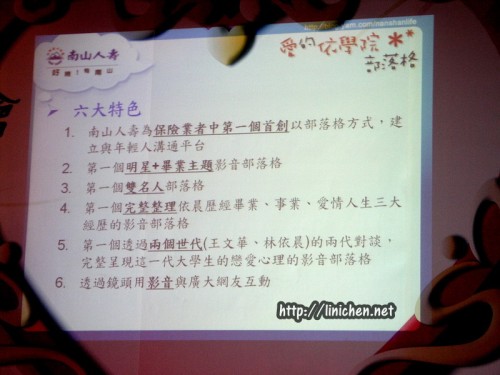 南山人壽
好險!有南山
愛的依學院**
部落格
六大特色
1. 南山人壽為保險業者中第一個首創以部落格方式,建
立與年輕人溝通平台
2. 第一個明星+畢業主題影音部落格
3. 第一個雙名人部落格
4. 第一個完整整理依晨歷經畢業、事業、愛情人生三大
經歷的影音部落格
5. 第一個透過兩個世代(王文華、林依晨)的兩代對談,
完整呈現這一代大學生的戀愛心理的影音部落格
6. 透過鏡頭用影音與廣大網友互動
http://linichen.net